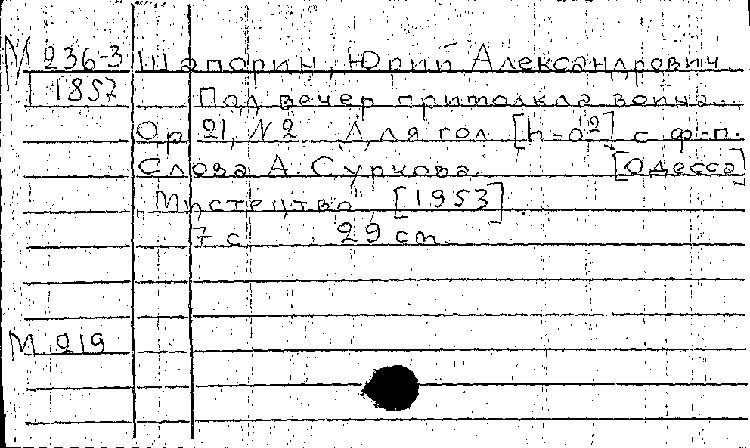 М 236-3 Шапорин, Юрий Александрович
1857 Под вечер примолкла война...
Op 21, N 2 Для гол [h-a²] с ф-п.
Слова А. Суркова. [Одесса]
Мистецтво, [1953].
7 с. 29 cm
М 219